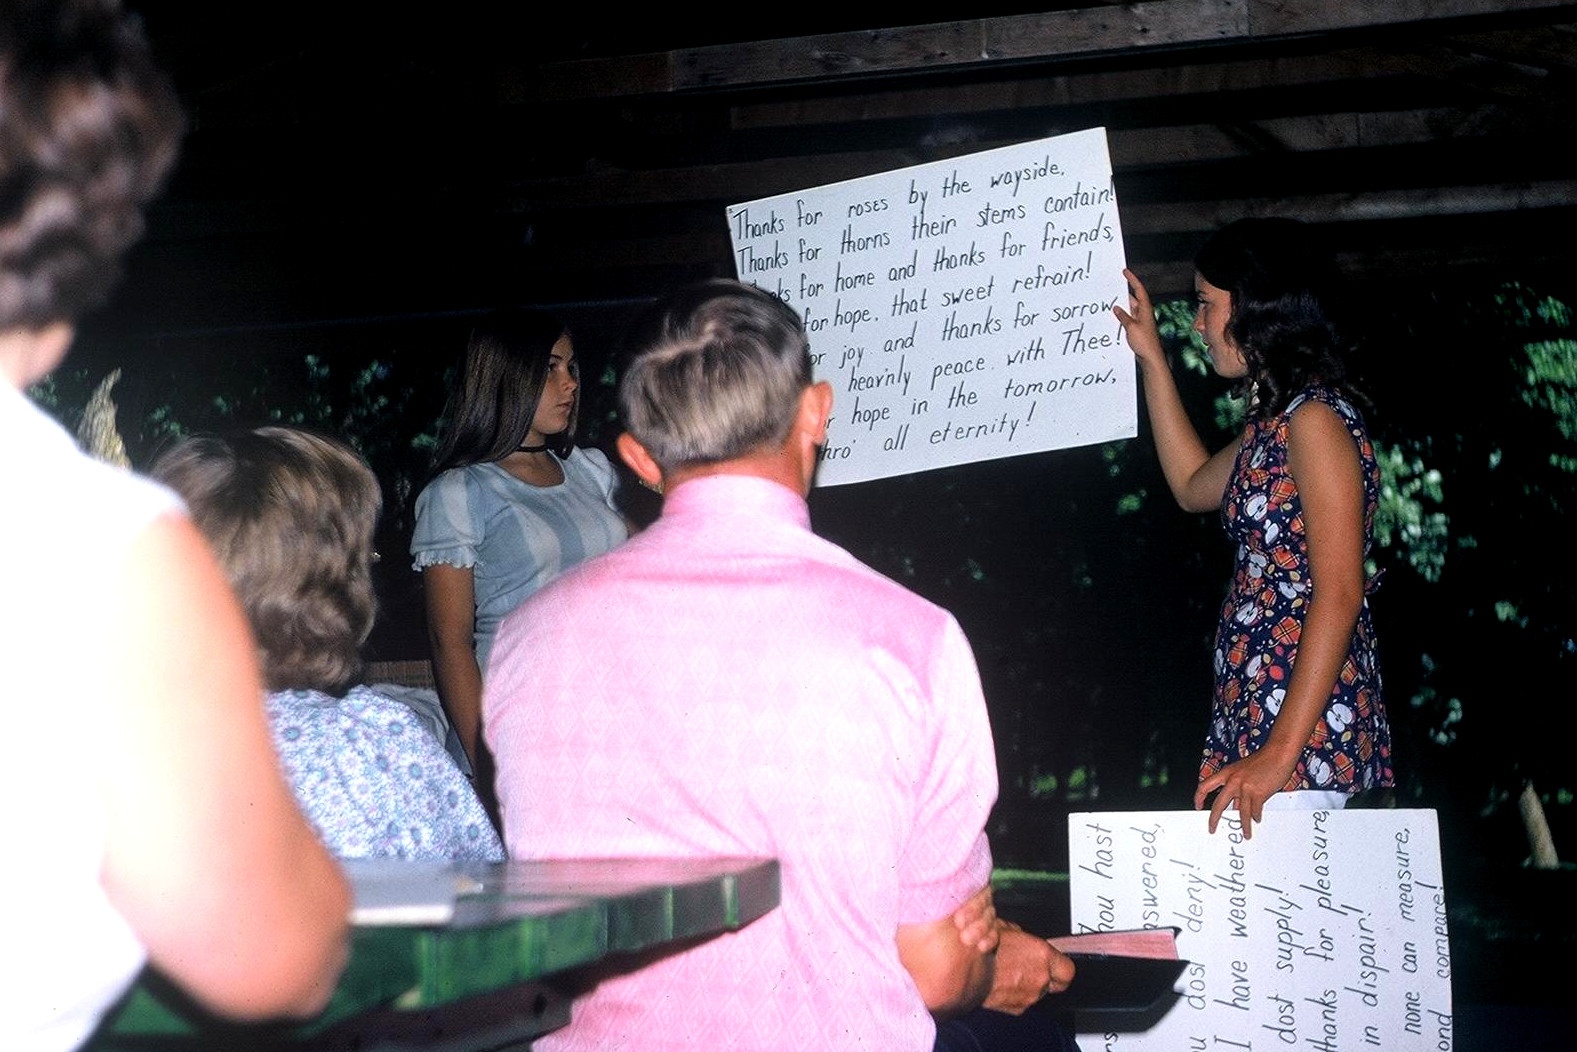 Thanks for roses by the wayside,
Thanks for thorns their stems contain!
for home and thanks for friends,
for hope, that sweet refrain!
joy and thanks for sorrow
heavinly peace with Thee!
hope in the tomorrow,
all eternity!
hast
deny!
I have weathered
dost supply!
thanks for pleasure,
in dispair!
none can measure,
compare!